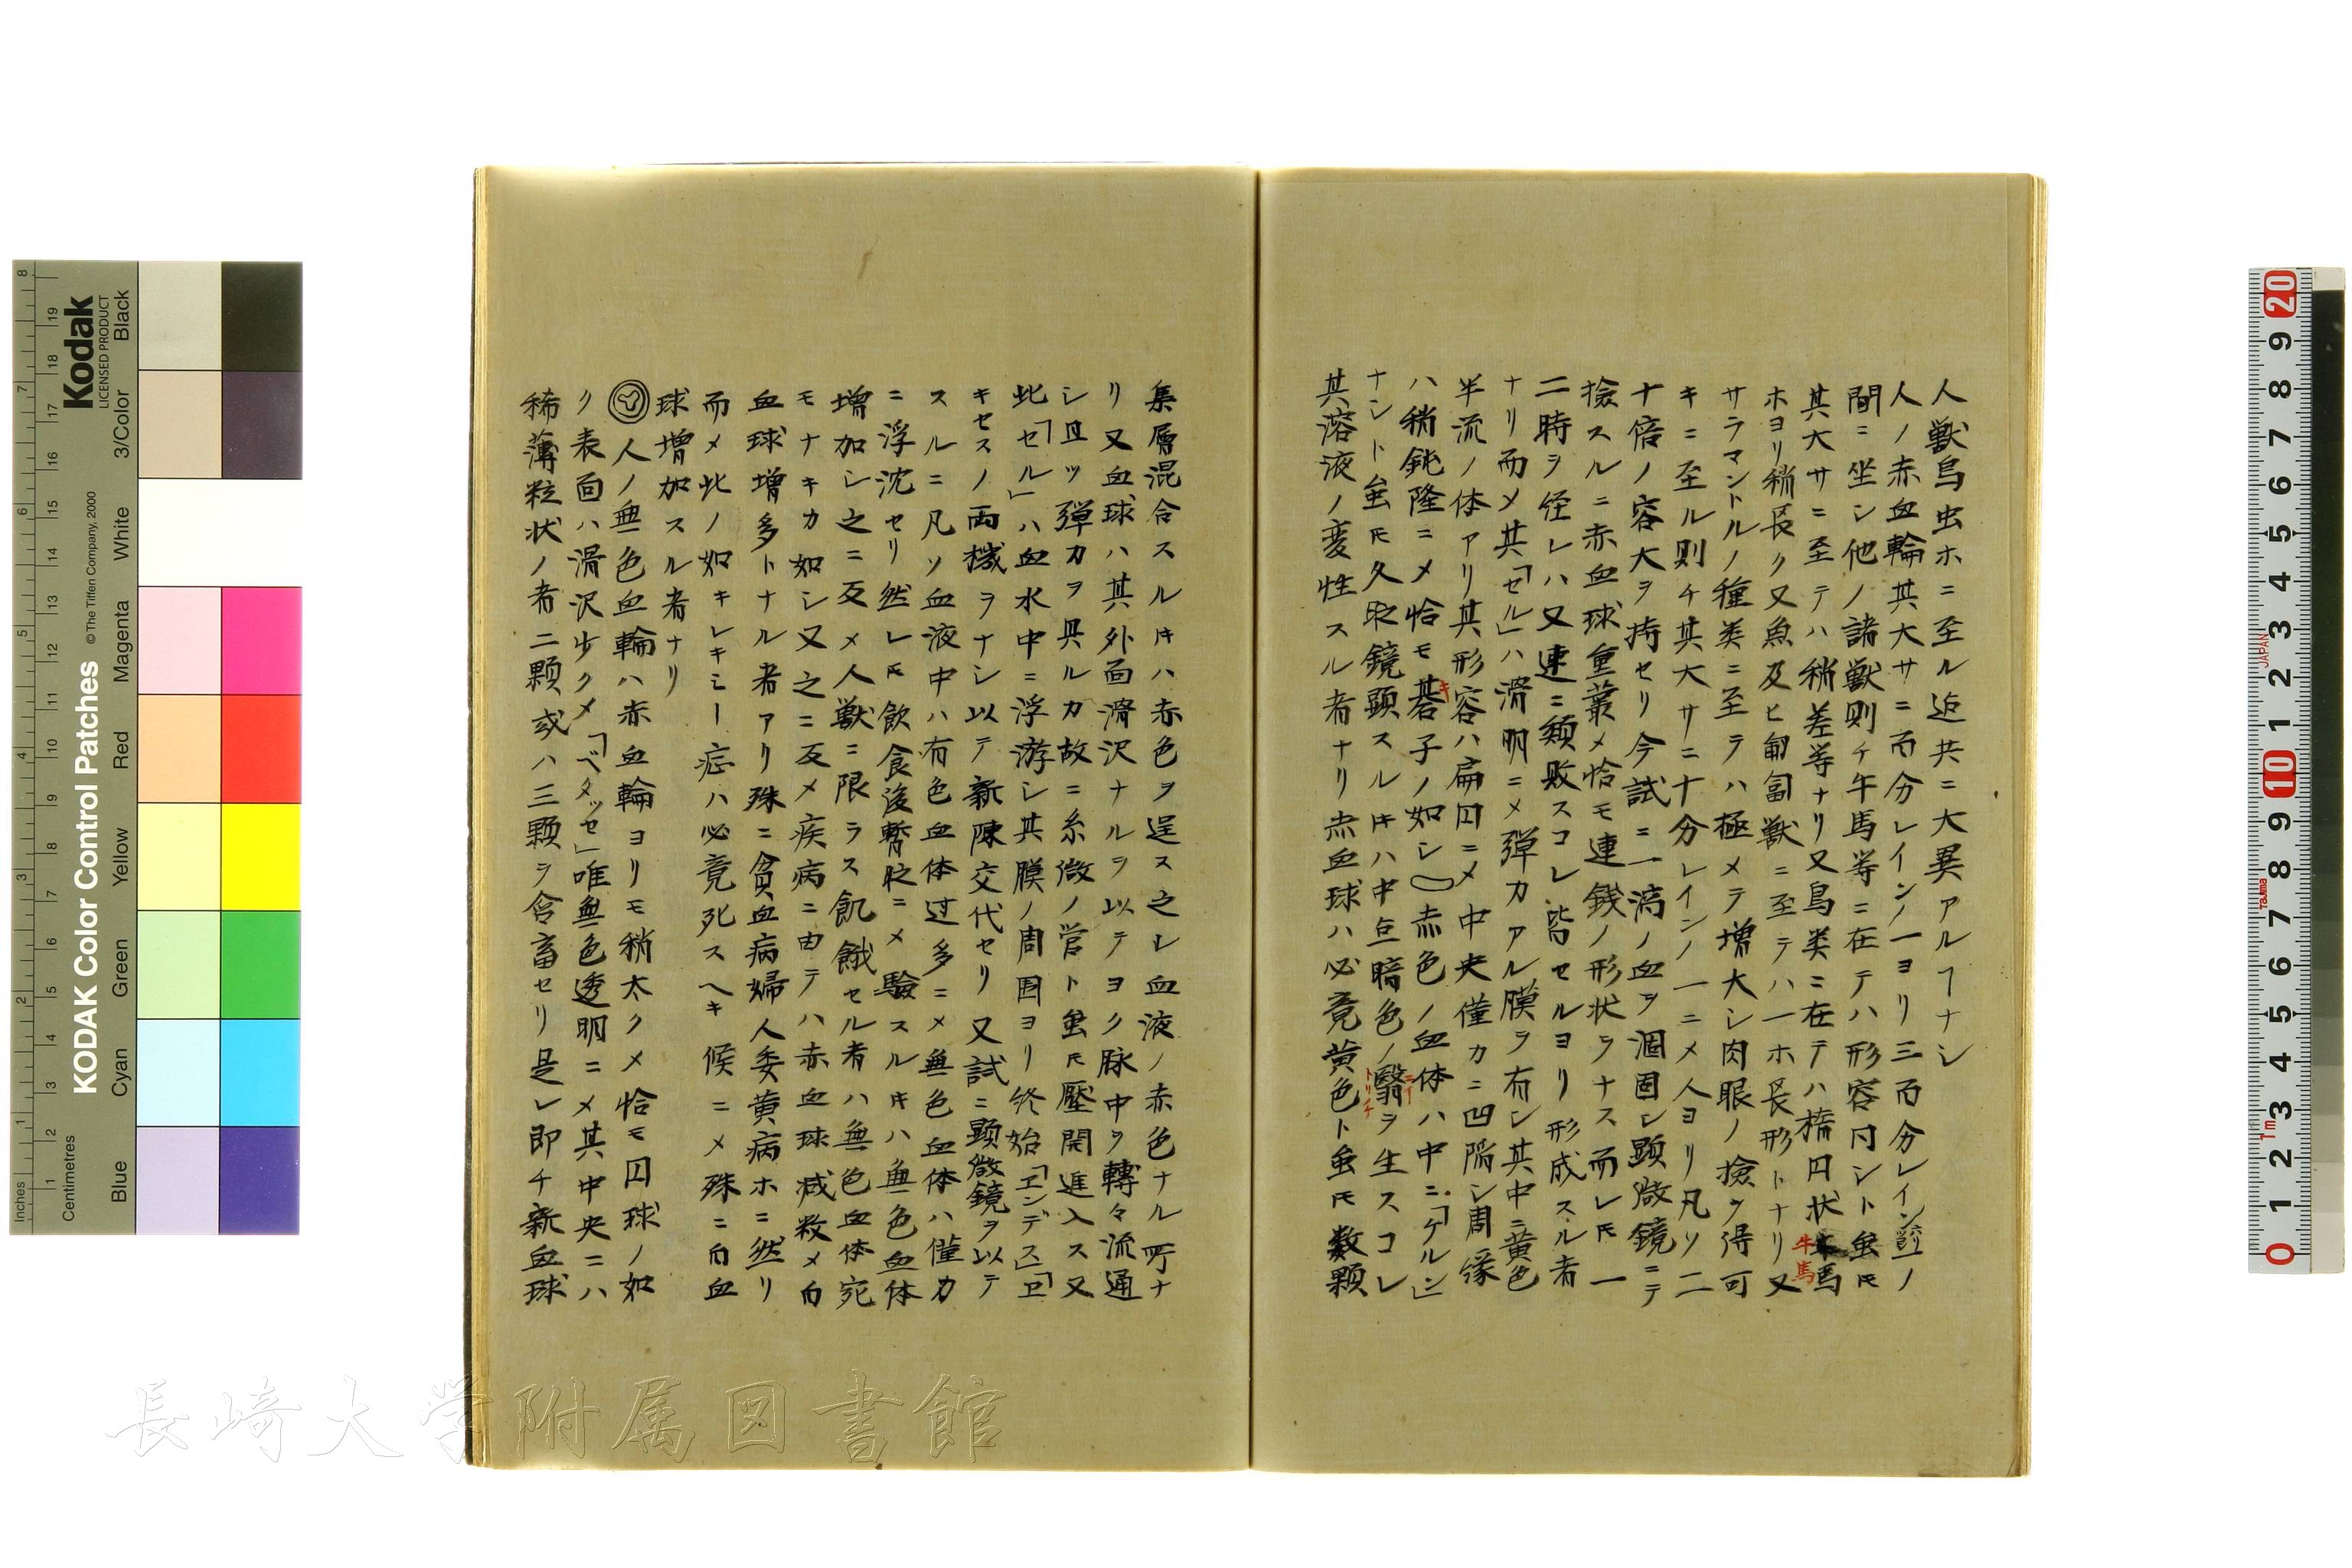 人獣鳥虫ホニ至ル迠共ニ大異アルヿナシ
人ノ赤血輪其大サニ而分レインノ一ヨリ三而分レインノ
間ニ坐シ他ノ諸獣則チ牛馬等ニ在テハ形容同シト虽𪜈
其大サニ至テハ稍差等ナリ又鳥类ニ在テハ楕円状馬
牛馬
ホヨリ稍長ク又魚及ヒ匍匐獣ニ至テハ一ホ長形トナリ又
サラマントルノ種类ニ至ラハ極メテ増大シ肉眼ノ撿ヲ得可
キニ至ル則チ其大サニ十分レインノ一ニメ人ヨリ凡ソ二
十倍ノ容大ヲ持セリ今試ニ一滴ノ血ヲ涸固シ顕微鏡ニテ
撿スルニ赤血球重叢メ恰モ連銭ノ形状ヲナス而レ𪜈一
二時ヲ径レハ又速ニ頽敗スコレ皆セルヨリ形成スル者
ナリ而メ其「セル」ハ滑明ニメ弾力アル膜ヲ有シ其中ニ黄色
半流ノ体アリ其形容ハ扁円ニメ中央僅カニ凹陥シ周縁
ハ稍鈍隆ニメ恰モ碁子ノ如シ赤色ノ血体ハ中ニ「ケルン」
キ
ナシト虽𪜈久㫐鏡顕スル𪜈ハ中点暗色ノ翳ヲ生スコレ
トリチ
其溶液ノ変性スル者ナリ赤血球ハ必竟黄色ト虽𪜈数顆
集層混合スル𪜈ハ赤色ヲ逞ス之レ血液ノ赤色ナル所ナ
リ又血球ハ其外面滑沢ナルヲ以テヨク脉中ヲ轉々流通
シ且ツ弾力ヲ具ルカ故ニ糸微ノ管ト虽𪜈壓開進入ス又
此「セル」ハ血水中ニ浮游シ其膜ノ周囲ヨリ終始「エンデス」「エ
キセスノ両機ヲナシ以テ新陳交代セリ又試ニ顕微鏡ヲ以テ
スルニ凡ソ血液中ハ有色血体过多ニメ無色血体ハ僅カ
ニ浮沈セリ然レ𪜈飲食後暫㫐ニメ驗スル𪜈ハ無色血体
増加シ之ニ反メ人獣ニ限ラス飢餓セル者ハ無色血体宛
モナキカ如シ又之ニ反メ疾病ニ由テハ赤血球减数メ白
血球増多トナル者アリ殊ニ貧血病婦人委黄病ホニ然リ
而メ此ノ如キレキミー症ハ必竟死スヘキ候ニメ殊ニ白血
球増加スル者ナリ
人ノ無色血輪ハ赤血輪ヨリモ稍太クメ恰モ円球ノ如
ク表面ハ滑沢少クメ「ベタッセ」唯無色透明ニメ其中央ニハ
稀薄粒状ノ者二顆或ハ三顆ヲ含畜セリ是レ即チ新血球
長崎大学附属図書館
Kodak
LICENSED PRODUCT
KODAK Color Control Patches
© The Tiffen Company, 2000
Inches
Centimetres
Blue Cyan Green Yellow Red Magenta White 3/Color Black
JAPAN
Tajima